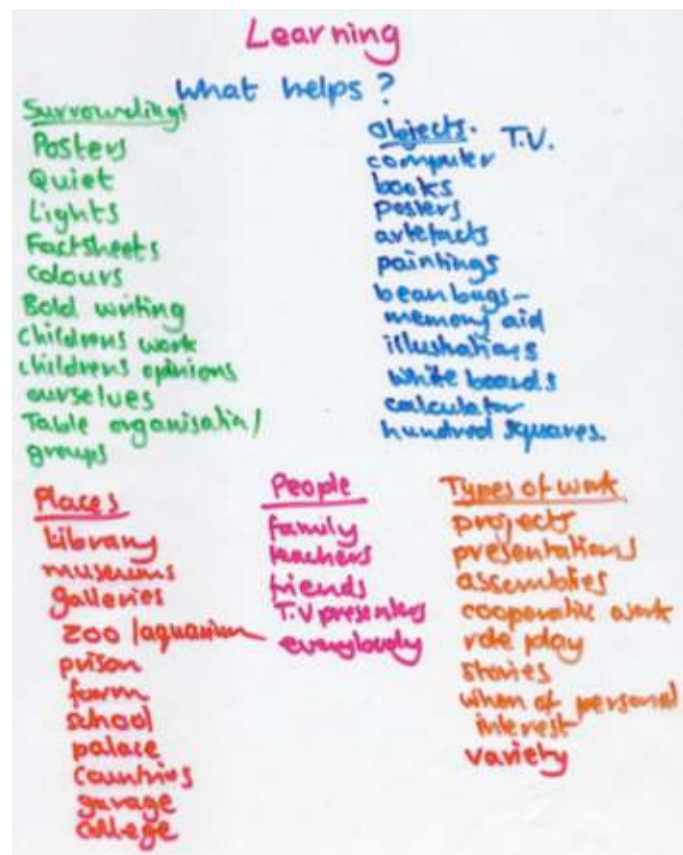 Learning
What helps?
Surroundings
Posters
Quiet
Lights
Factsheets
colours
Bold writing
Childrens work
childrens opinions
ourselves
Table organisatin/
groups
Objects. T.V.
computer
books
posters
artefacts
paintings
beanbags -
memory aid
illustrations
white boards
calculator
hundred squares.
Places
Library
museums
galleries
zoo/aquarium
prison
farm
school
palace
countries
garage
college
People
family
teachers
friends
T.V presenters
everybody
Types of work
projects
presentations
assemblies
cooperative work
role play
stories
when of personal
interest
variety